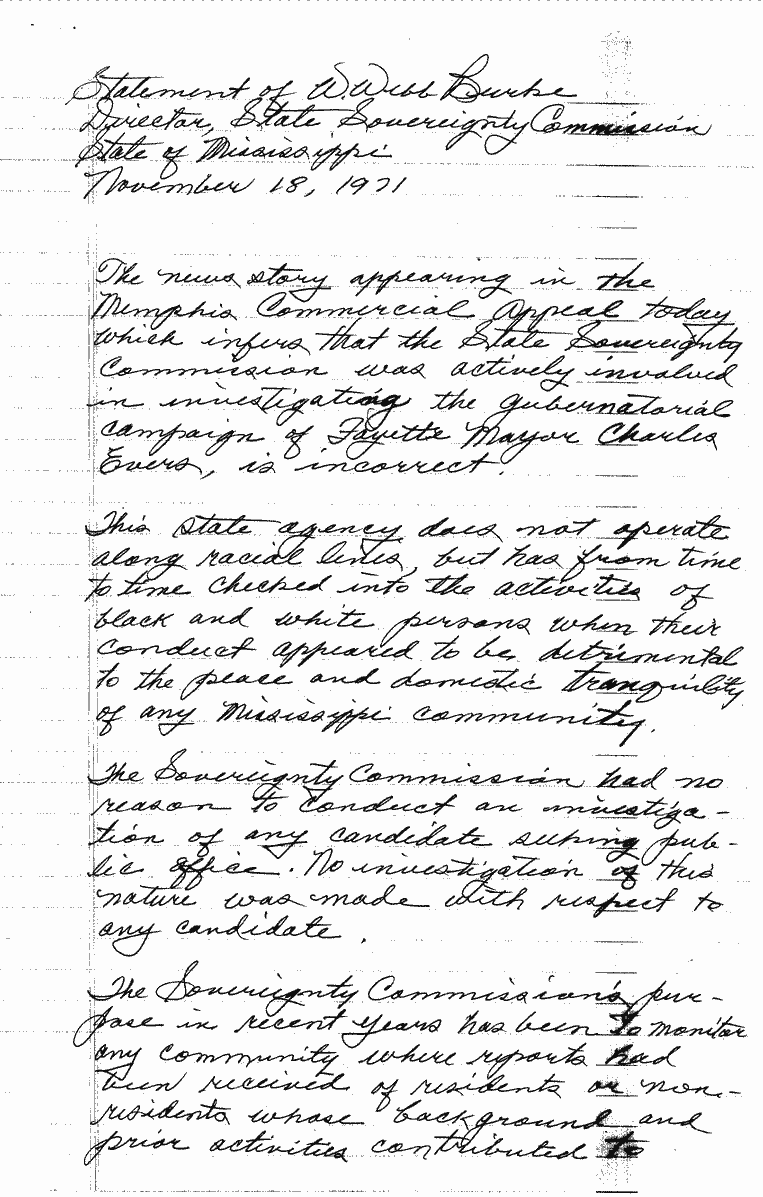 Statement of W. Webb Burke
Director, State Sovereignty Commission
State of Mississippi
November 18, 1971
The news story appearing in the
Memphis Commercial Appeal today
which infers that the State Sovereignty
Commission was actively involved
in investigating the gubernatorial
campaign of Fayette Mayor Charles
Evers, is incorrect.
This state agency does not operate
along racial lines, but has from time
to time checked into the activities of
black and white persons when their
conduct appeared to be detrimental
to the peace and domestic tranquility
of any Mississippi community.
The Sovereignty Commission had no
reason to conduct an investiga-
tion of any candidate seeking pub-
lic office. No investigation of this
nature was made with respect to
any candidate.
The Sovereignty Commission's pur-
pose in recent years has been to monitor
any community where reports had
been received of residents or non-
residents whose background and
prior activities contributed to